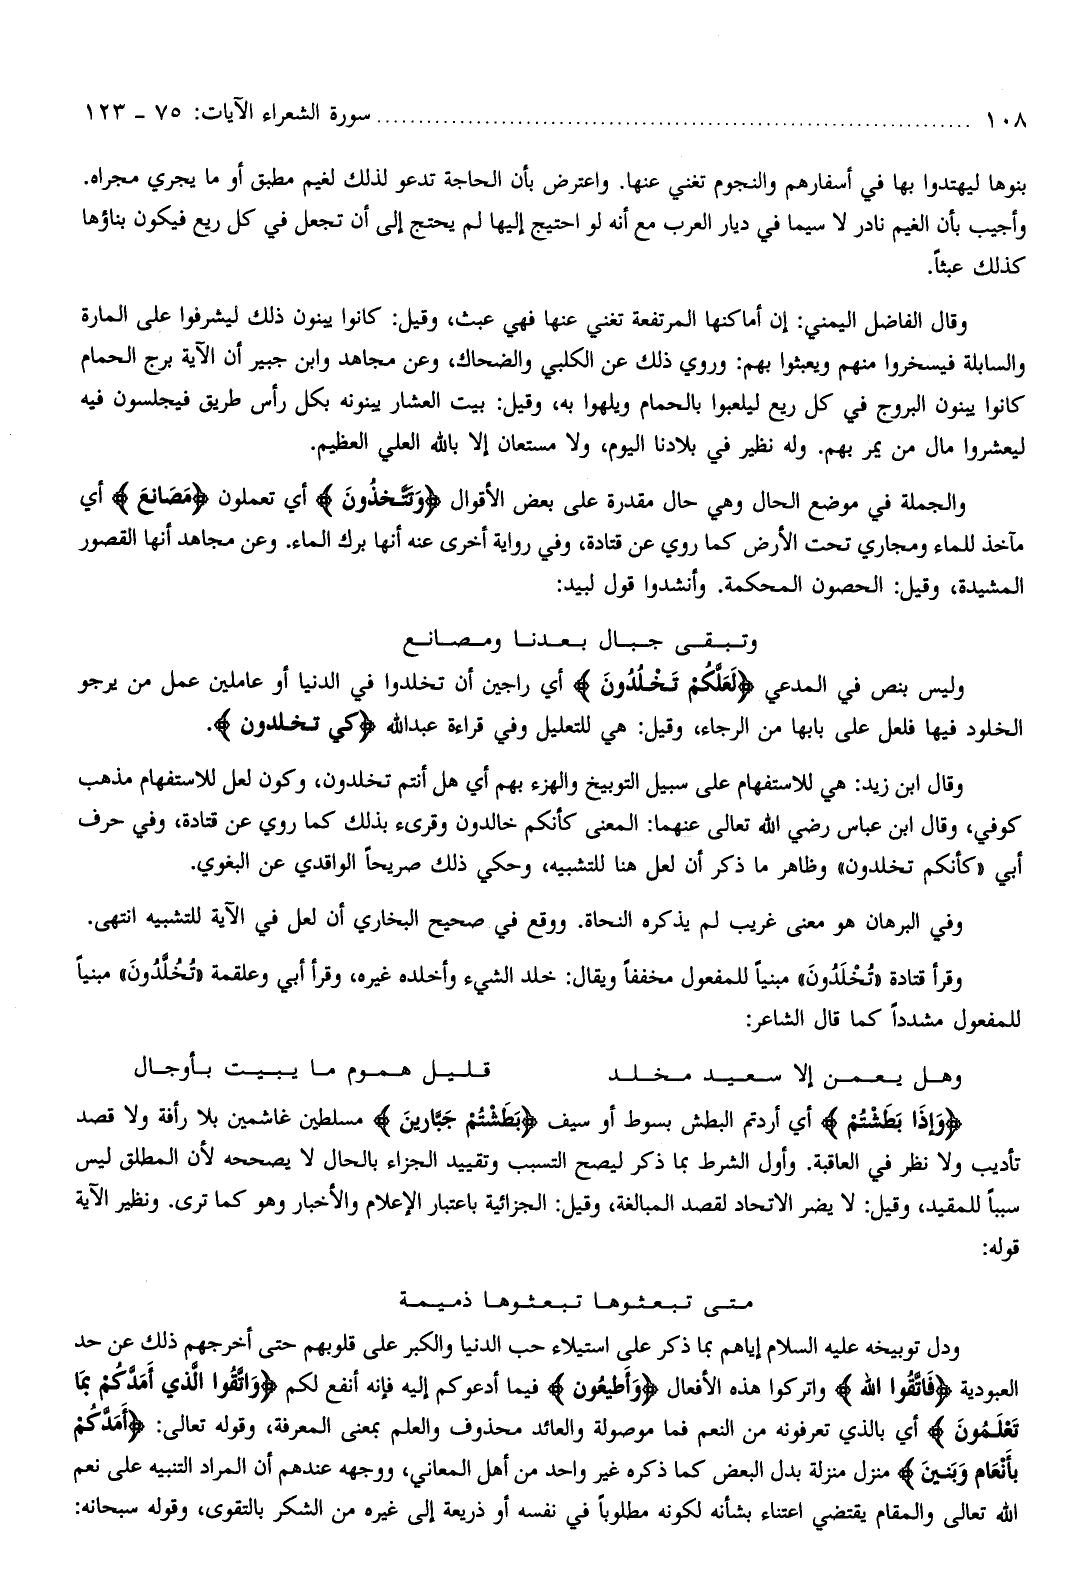 ١٠٨ ........................................................................ سورة الشعراء الآيات: ٧٥ ـ ١٢٣
بنوها ليهتدوا بها في أسفارهم والنجوم تغني عنها. واعترض بأن الحاجة تدعو لذلك لغيم مطبق أو ما يجري مجراه.
وأجيب بأن الغيم نادر لا سيما في ديار العرب مع أنه لو احتيج إليها لم يحتج إلى أن تجعل في كل ريع فيكون بناؤها
كذلك عبثاً.
وقال الفاضل اليمني: إن أماكنها المرتفعة تغني عنها فهي عبث، وقيل: كانوا يبنون ذلك ليشرفوا على المارة
والسابلة فيسخروا منهم ويعبثوا بهم: وروي ذلك عن الكلبي والضحاك، وعن مجاهد وابن جبير أن الآية برج الحمام
كانوا يبنون البروج في كل ريع ليلعبوا بالحمام ويلهوا به، وقيل: بيت العشار يبنونه بكل رأس طريق فيجلسون فيه
ليعشروا مال من يمر بهم. وله نظير في بلادنا اليوم، ولا مستعان إلا بالله العلي العظيم.
والجملة في موضع الحال وهي حال مقدرة على بعض الأقوال ﴿وَتَتَّخذُونَ﴾ أي تعملون ﴿مَصَانعَ﴾ أي
مآخذ للماء ومجاري تحت الأرض كما روي عن قتادة، وفي رواية أخرى عنه أنها برك الماء. وعن مجاهد أنها القصور
المشيدة، وقيل: الحصون المحكمة. وأنشدوا قول لبيد:
وتبقى جبال بعدنا ومصانع
وليس بنص في المدعي ﴿لَعَلَّكُمْ تَخْلُدُونَ﴾ أي راجين أن تخلدوا في الدنيا أو عاملين عمل من يرجو
الخلود فيها فلعل على بابها من الرجاء، وقيل: هي للتعليل وفي قراءة عبدالله ﴿كي تخلدون﴾.
وقال ابن زيد: هي للاستفهام على سبيل التوبيخ والهزء بهم أي هل أنتم تخلدون، وكون لعل للاستفهام مذهب
كوفي، وقال ابن عباس رضي الله تعالى عنهما: المعنى كأنكم خالدون وقرىء بذلك كما روي عن قتادة، وفي حرف
أبي «كأنكم تخلدون» وظاهر ما ذكر أن لعل هنا للتشبيه، وحكي ذلك صريحاً الواقدي عن البغوي.
وفي البرهان هو معنى غريب لم يذكره النحاة. ووقع في صحيح البخاري أن لعل في الآية للتشبيه انتهى.
وقرأ قتادة «تُخْلَدُونَ» مبنياً للمفعول مخففاً ويقال: خلد الشيء وأخلده غيره، وقرأ أبي وعلقمة «تُخُلَّدُونَ» مبنياً
للمفعول مشدداً كما قال الشاعر:
وهل يعمن إلا سعيد مخلد قليل هموم ما يبيت بأوجال
﴿وَإِذَا بَطَشْتُمْ﴾ أي أردتم البطش بسوط أو سيف ﴿بَطَشْتُمْ جَبَّارينَ﴾ مسلطين غاشمين بلا رأفة ولا قصد
تأديب ولا نظر في العاقبة. وأول الشرط بما ذكر ليصح التسبب وتقييد الجزاء بالحال لا يصححه لأن المطلق ليس
سبباً للمقيد، وقيل: لا يضر الاتحاد لقصد المبالغة، وقيل: الجزائية باعتبار الإعلام والأخبار وهو كما ترى. ونظير الآية
قوله:
متى تبعثوها تبعثوها ذميمة
ودل توبيخه عليه السلام إياهم بما ذكر على استيلاء حب الدنيا والكبر على قلوبهم حتى أخرجهم ذلك عن حد
العبودية ﴿فَاتَّقُوا الله﴾ واتركوا هذه الأفعال ﴿وَأَطيعُون﴾ فيما أدعوكم إليه فإنه أنفع لكم ﴿وَاتَّقُوا الَّذي أَمَدَّكُمْ بمَا
تَعْلَمُونَ﴾ أي بالذي تعرفونه من النعم فما موصولة والعائد محذوف والعلم بمعنى المعرفة، وقوله تعالى: ﴿أَمَدَّكُمْ
بأَنْعَام وَبَنينَ﴾ منزل منزلة بدل البعض كما ذكره غير واحد من أهل المعاني، ووجهه عندهم أن المراد التنبيه على نعم
الله تعالى والمقام يقتضي اعتناء بشأنه لكونه مطلوباً في نفسه أو ذريعة إلى غيره من الشكر بالتقوى، وقوله سبحانه: